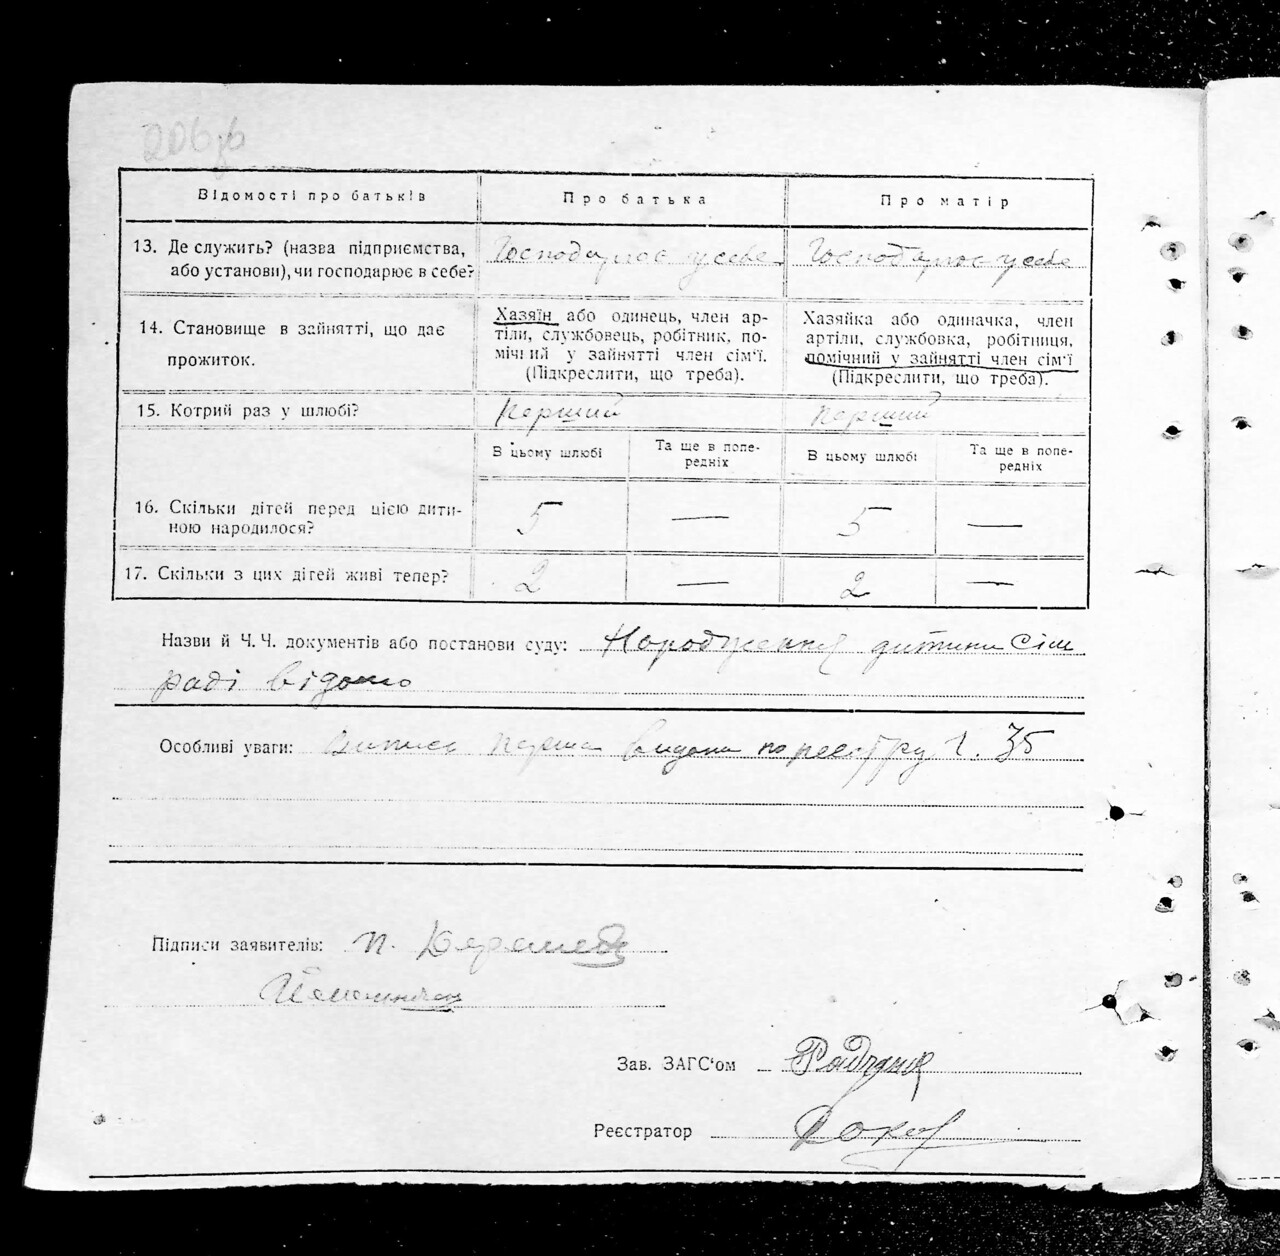 206зв
Відомості про батьків
Про батька
Про матір
13. Де служить? (назва підприємства,
або установи), чи господарює в себе?
Господарює у себе
Господарює у себе
14. Становище в зайнятті, що дає
прожиток.
Хазяїн або одинець, член ар-
тіли, службовець, робітник, по-
мічний у зайнятті член сім'ї.
(Підкреслити, що треба).
Хазяйка або одиначка, член
артіли, службовка, робітниця,
помічний у зайнятті член сім'ї
(Підкреслити, що треба).
15. Котрий раз у шлюбі?
перший
перший
В цьому шлюбі
Та ще в попе-
редніх
В цьому шлюбі
Та ще в попе-
редніх
16. Скільки дітей перед цією дити-
ною народилося?
5
—
5
—
17. Скільки з цих дітей живі тепер?
2
—
2
—
Назви й Ч. Ч. документів або постанови суду: Народження дитини Сіль
раді відомо
Особливі уваги: Випись перша видана по реєстру Ч. 35
Підписи заявителів: П.
Зав. ЗАГС'ом
Реєстратор